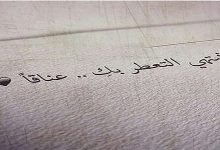 أشتهي التعطر بك .. عناقاً